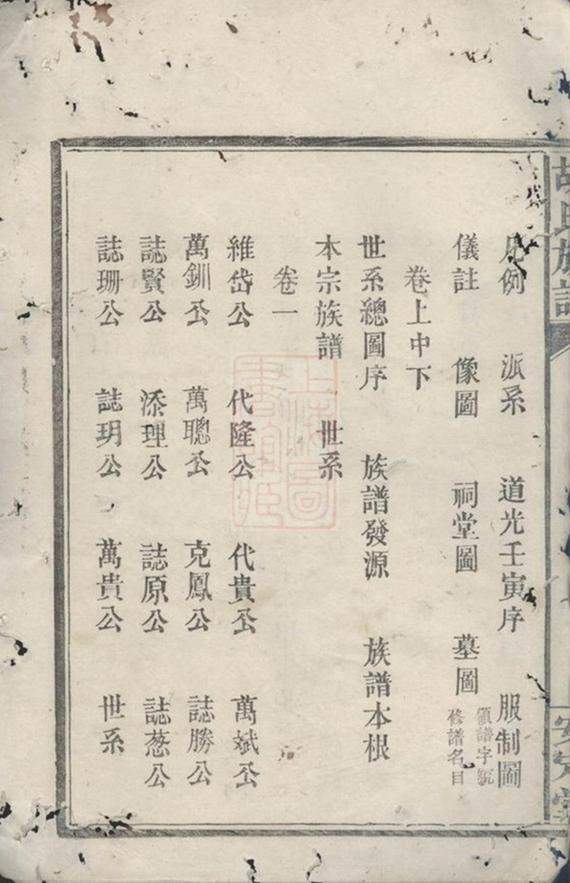 胡氏族譜
凡例 派系 道光壬寅序 服制圖
儀註 像圖 祠堂圖 墓圖 領譜字號 修譜名目
卷上中下
世系總圖序 族譜發源 族譜本根
本宗族譜 世系
卷一
維岱公 代隆公 代貴公 萬斌公
萬釧公 萬聰公 克鳳公 誌勝公
誌賢公 添理公 誌原公 誌葱公
誌珊公 誌玥公 萬貴公 世系
上海圖書館藏